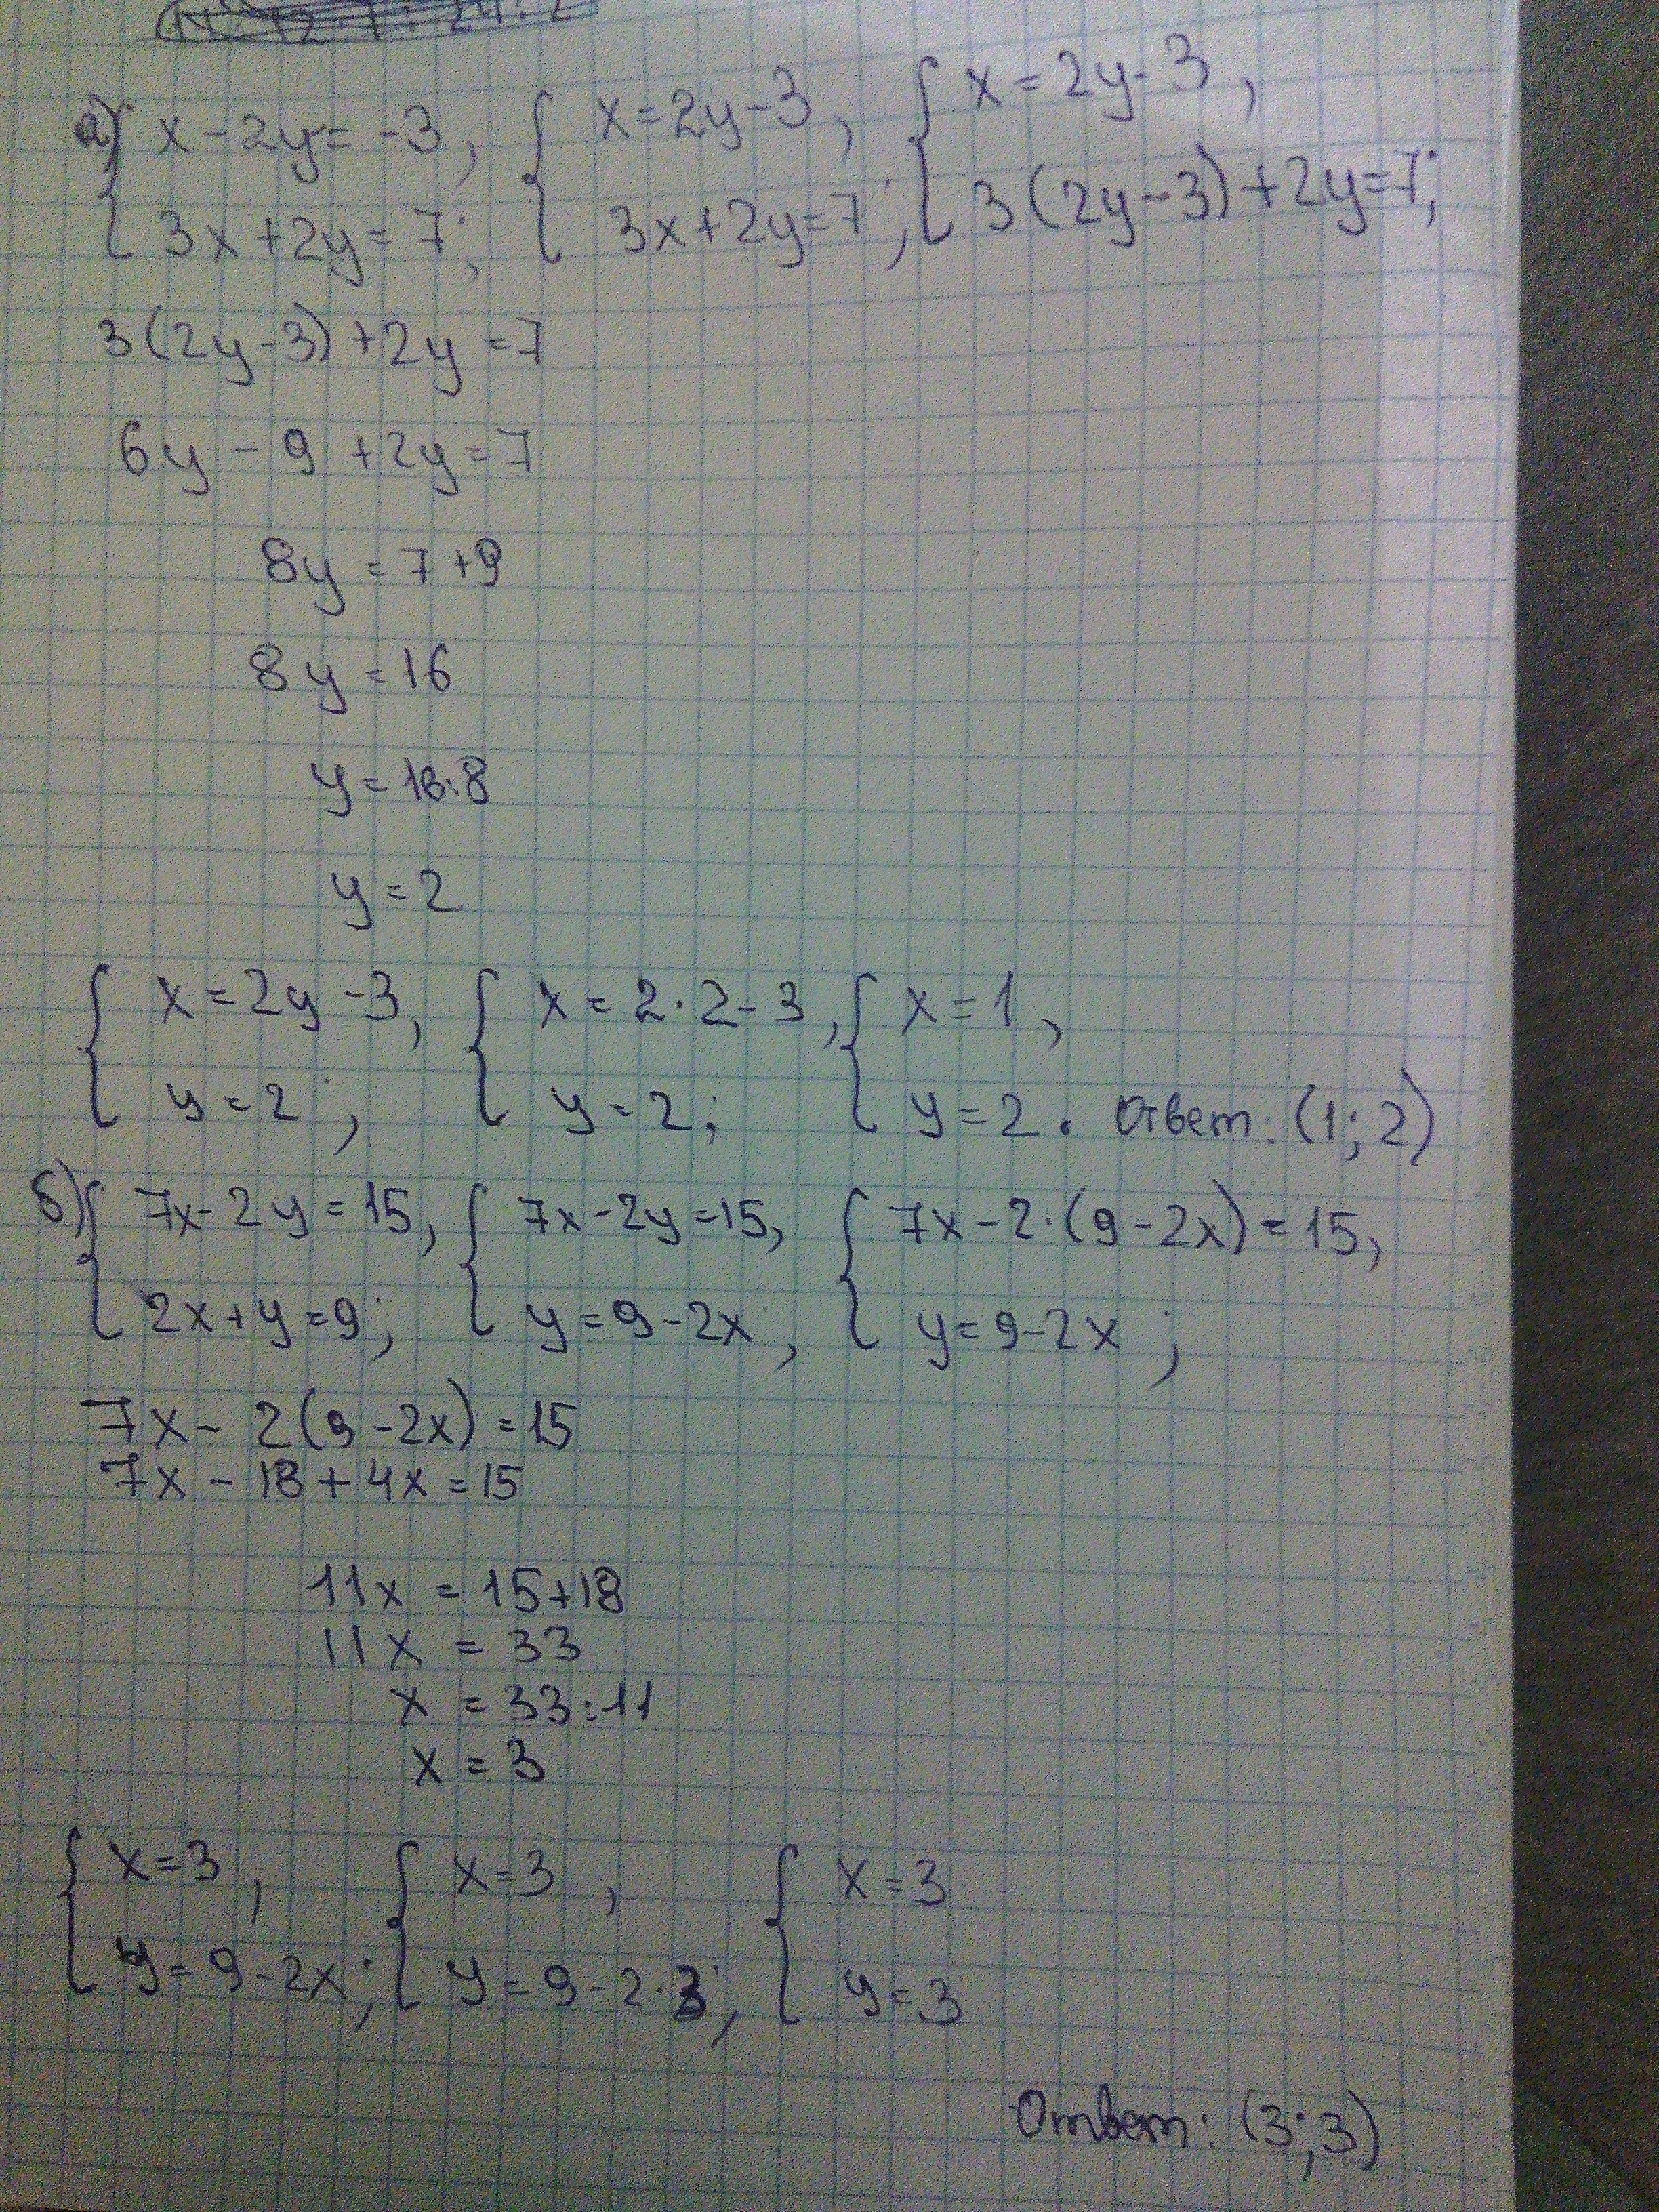 а) { x - 2y = -3, { x = 2y - 3, { x = 2y - 3,
3x + 2y = 7; 3x + 2y = 7; 3(2y - 3) + 2y = 7;
3(2y - 3) + 2y = 7
6y - 9 + 2y = 7
8y = 7 + 9
8y = 16
y = 16:8
y = 2
{ x = 2y - 3, { x = 2·2 - 3, { x = 1,
y = 2; y = 2; y = 2. Ответ: (1; 2)
б) { 7x - 2y = 15, { 7x - 2y = 15, { 7x - 2·(9 - 2x) = 15,
2x + y = 9; y = 9 - 2x; y = 9 - 2x;
7x - 2(9 - 2x) = 15
7x - 18 + 4x = 15
11x = 15 + 18
11x = 33
x = 33:11
x = 3
{ x = 3, { x = 3, { x = 3
y = 9 - 2x; y = 9 - 2·3; y = 3
Ответ: (3; 3)